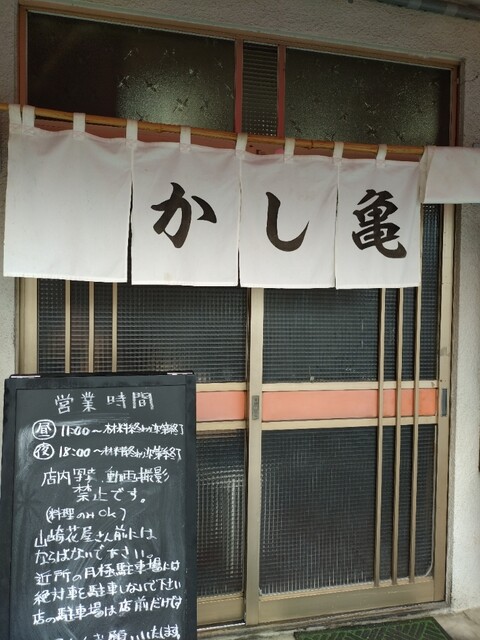 亀しか
営業時間
昼 11:00〜材料終わり次第終了
夜 18:00〜材料終わり次第終了
店内写真、動画撮影
禁止です。
(料理のみOK)
山崎花屋さん前には
ならばないで下さい。
近所の月極駐車場には
絶対車を駐車しないで下さい
店の駐車場は店前だけです
お願いいたします